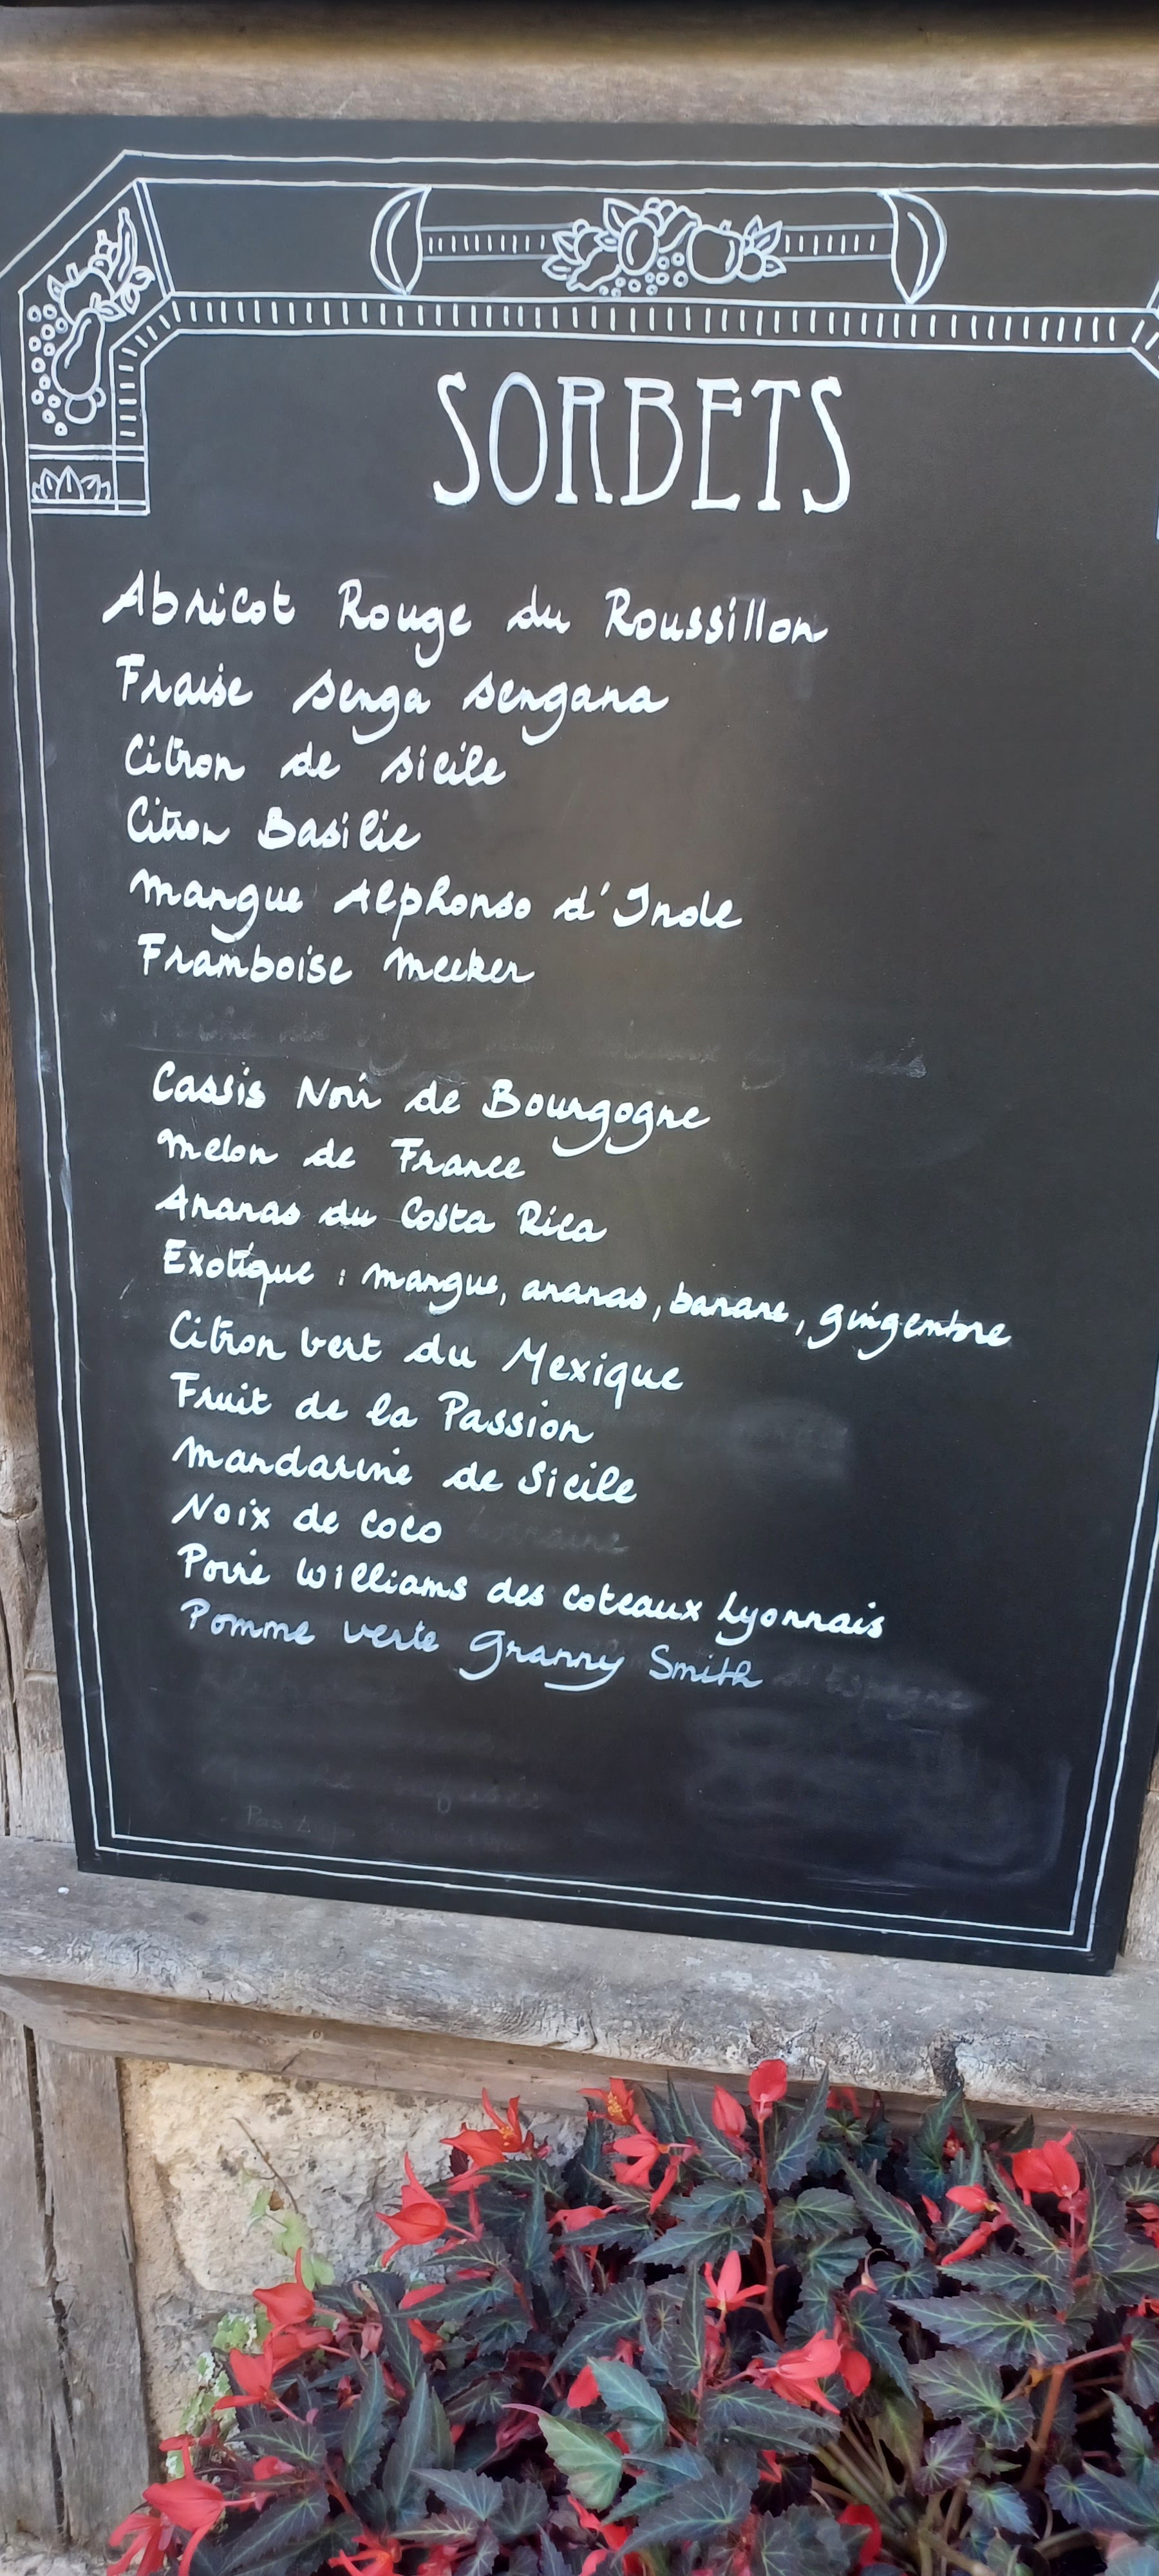 SORBETS
Abricot Rouge du Roussillon
Fraise Senga Sengana
Citron de Sicile
Citron Basilic
Mangue Alphonso d'Inde
Framboise Meeker
Cassis Noir de Bourgogne
Melon de France
Ananas du Costa Rica
Exotique : mangue, ananas, banane, gingembre
Citron vert du Mexique
Fruit de la Passion
Mandarine de Sicile
Noix de coco
Poire Williams des coteaux Lyonnais
Pomme verte Granny Smith